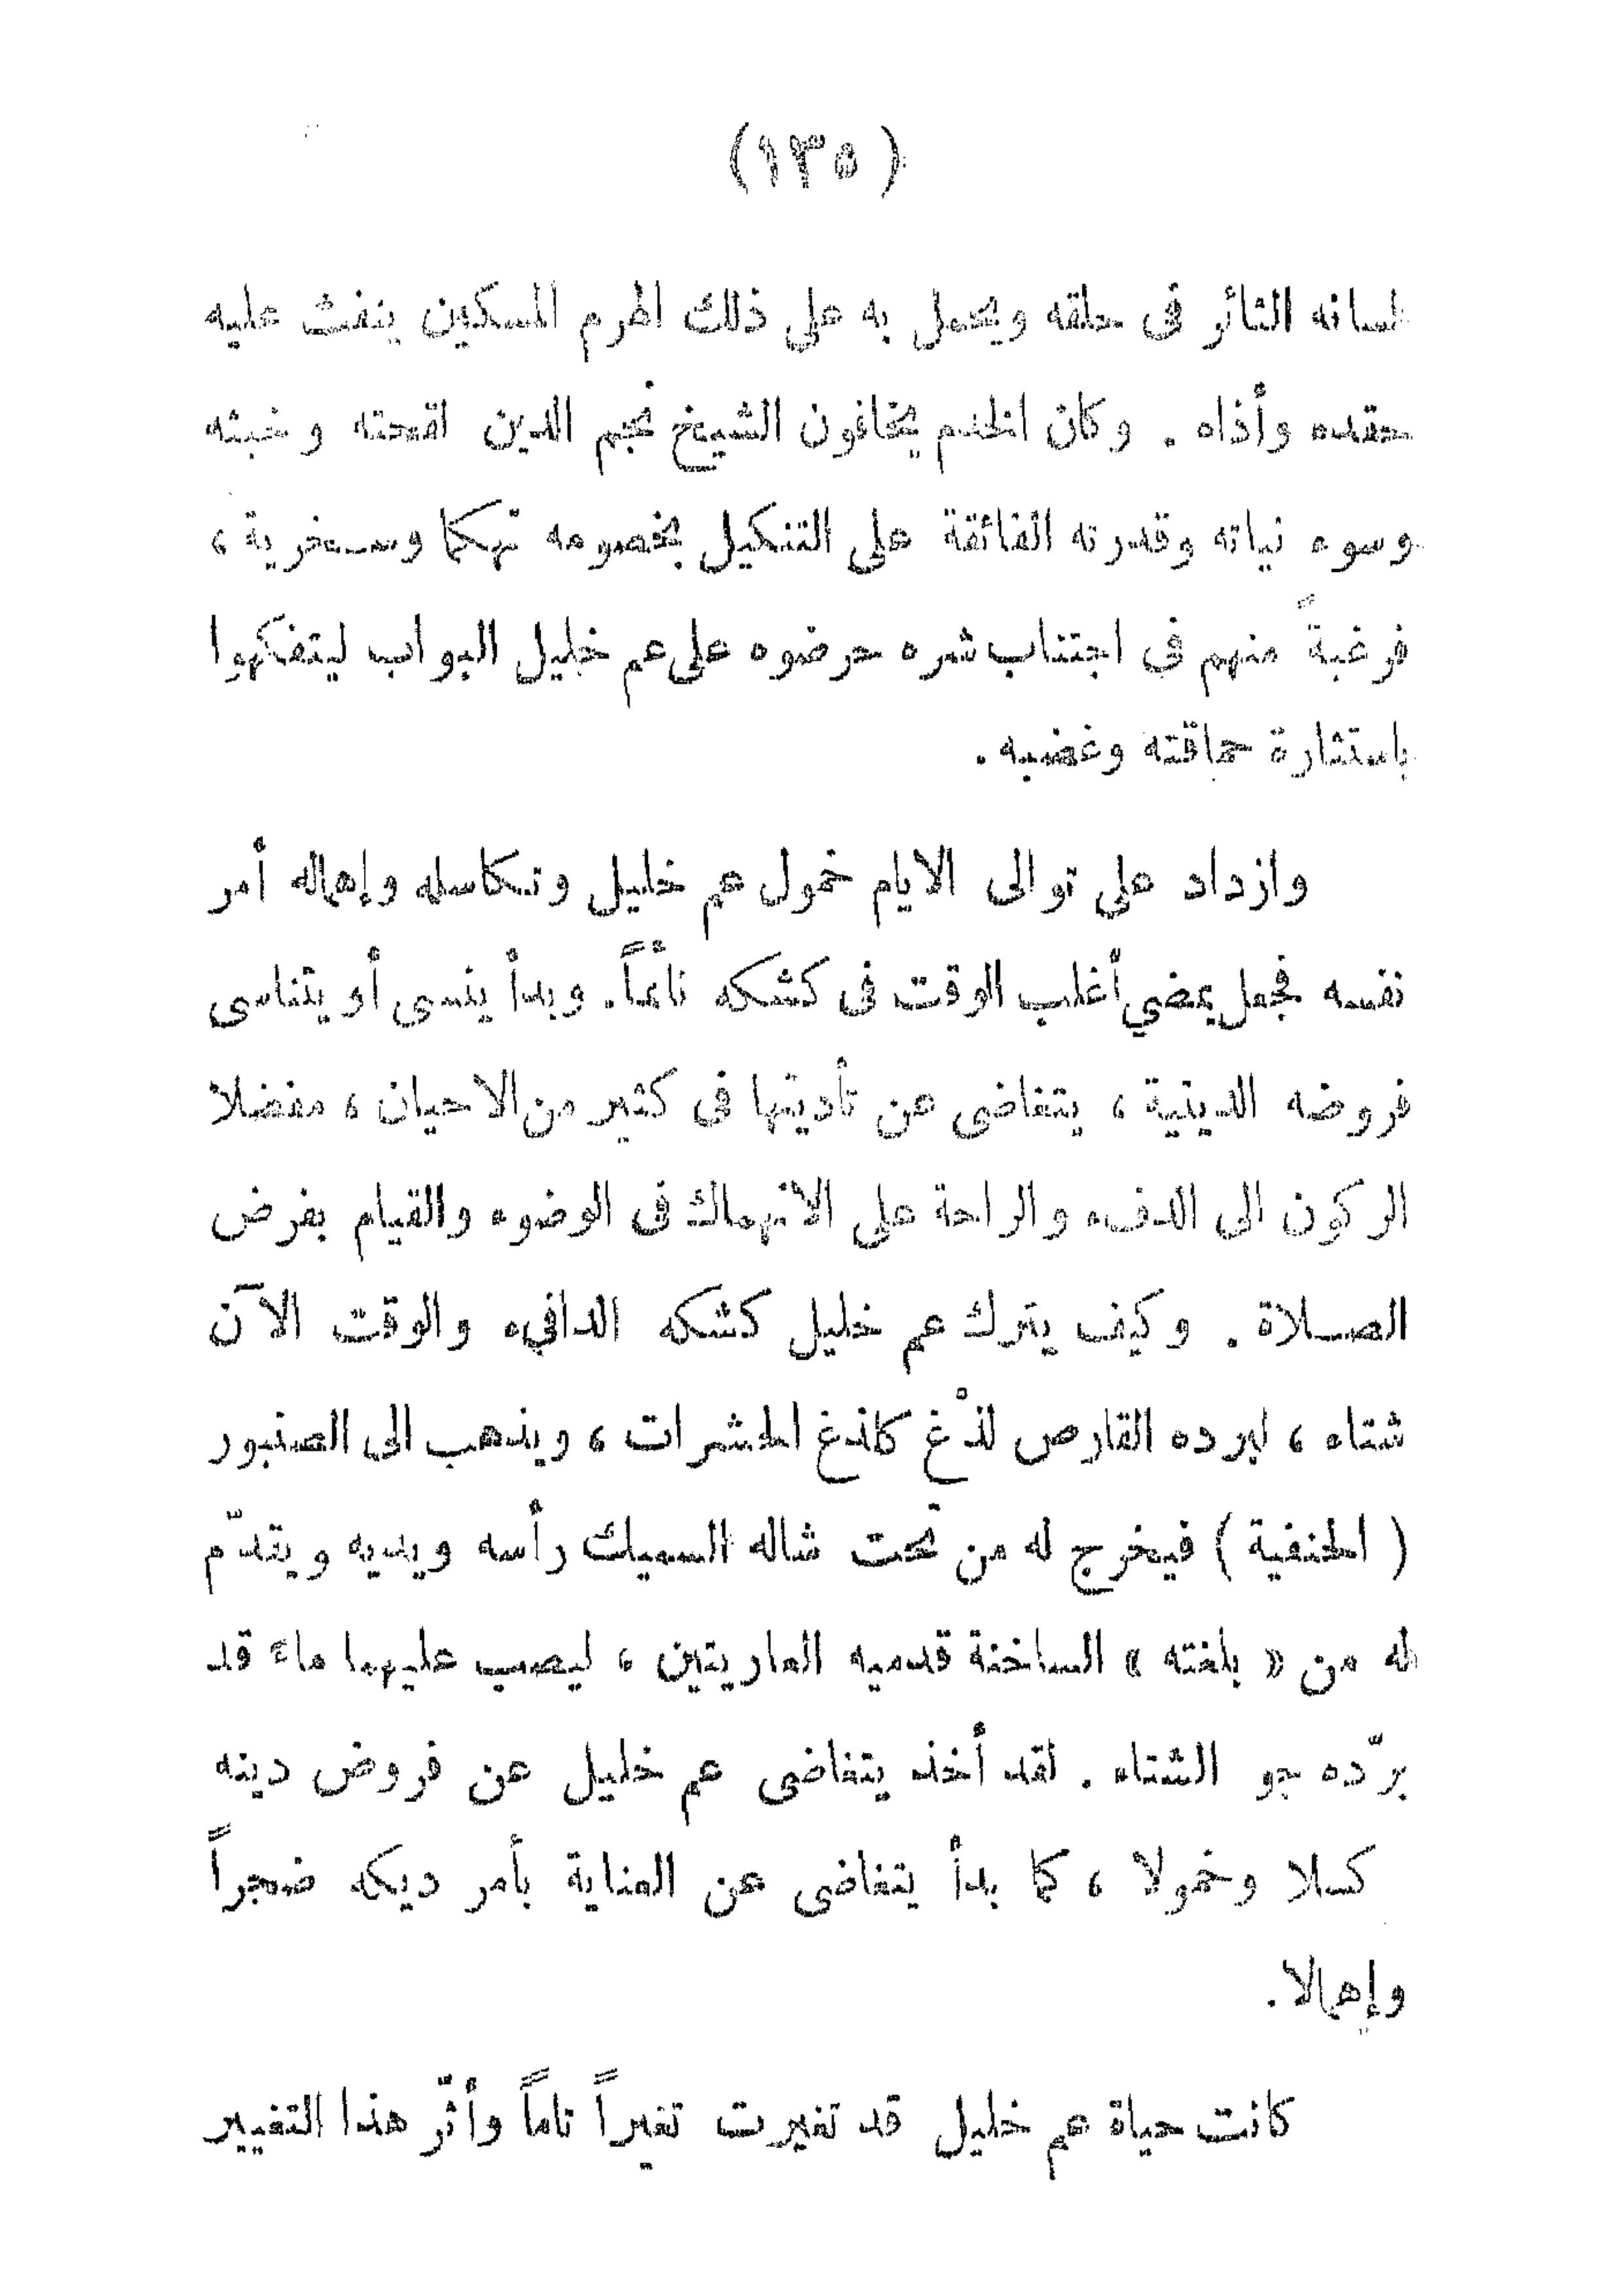 (١٣٥)
لسانه الثائر فى حلقه ويحمل به على ذلك الهرم المسكين ينفث عليه
حقده وأذاه . وكان الخدم يخافون الشيخ نجم الدين لقحته وخبثه
وسوء نياته وقدرته الفائقة على التنكيل بخصومه تهكما وسخرية ،
فرغبةً منهم فى اجتناب شره حرضوه على عم خليل البواب ليتفكهوا
باستثارة حماقته وغضبه .
وازداد على توالى الايام خمول عم خليل وتكاسله وإهماله أمر
نفسه فجعل يمضي أغلب الوقت فى كشكه نائماً . وبدأ ينسى أو يتناسى
فروضه الدينية ، يتغاضى عن تأديتها فى كثير من الاحيان ، مفضلا
الركون الى الدفء والراحة على الانهماك فى الوضوء والقيام بفرض
الصلاة . وكيف يترك عم خليل كشكه الدافيء والوقت الآن
شتاء ، لبرده القارص لذْغ كلذغ الحشرات ، ويذهب الى الصنبور
( الحنفية ) فيخرج له من تحت شاله السميك رأسه ويديه ويقدّم
له من « بلغته » الساخنة قدميه العاريتين ، ليصب عليهما ماءً قد
برّده جو الشتاء . لقد أخذ يتغاضى عم خليل عن فروض دينه
كسلا وخمولا ، كما بدأ يتغاضى عن العناية بأمر ديكه ضجراً
وإهمالا .
كانت حياة عم خليل قد تغيرت تغيراً تاماً وأثّر هذا التغيير